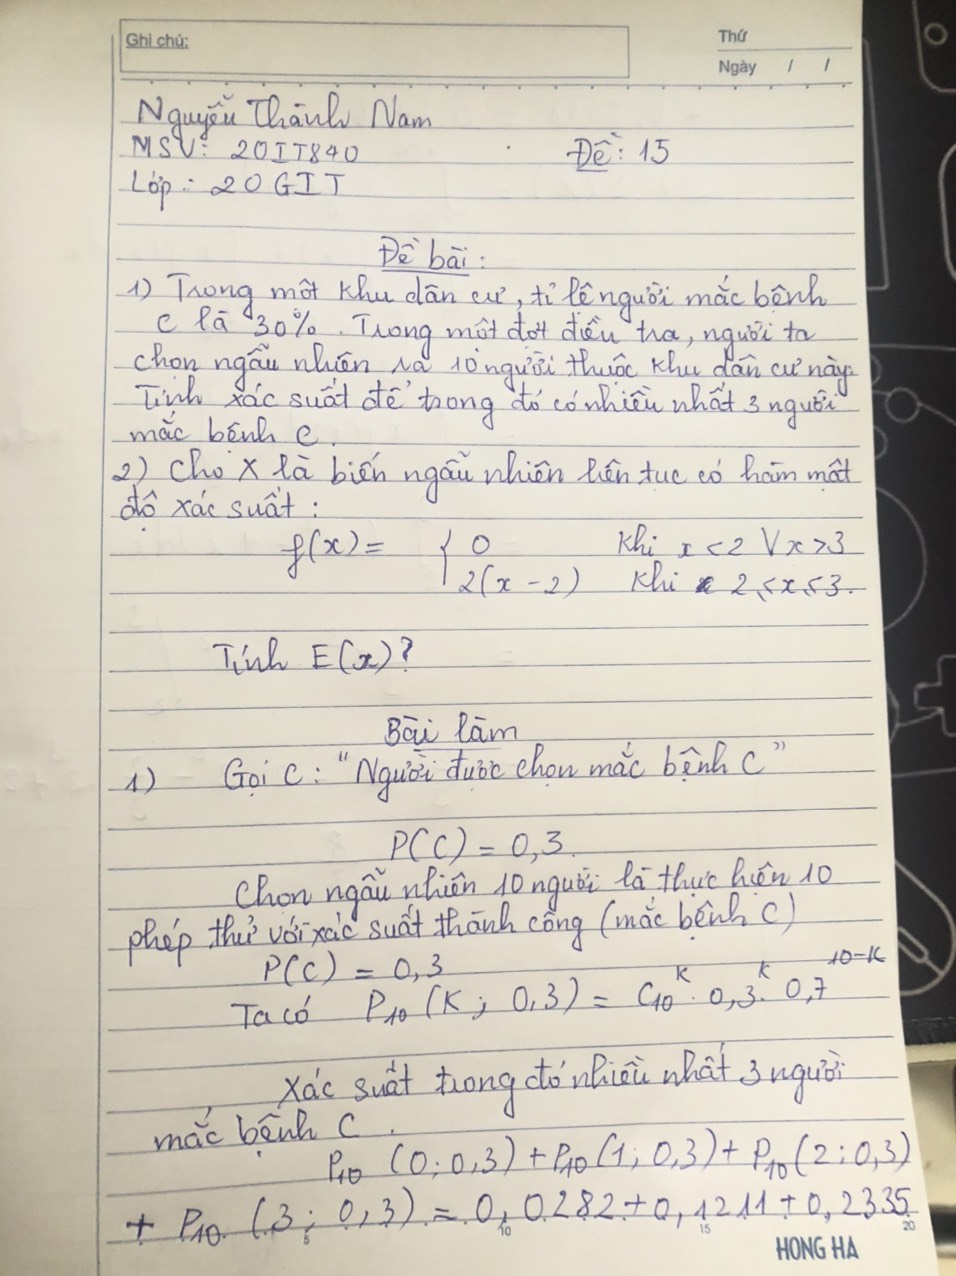 Ghi chú:
Thứ
Ngày / /
Nguyễn Thành Nam
MSV: 20IT840
Đề: 15
Lớp: 20GIT
Đề bài:
1) Trong một khu dân cư, tỉ lệ người mắc bệnh
C là 30%. Trong một đợt điều tra, người ta
chọn ngẫu nhiên ra 10 người thuộc khu dân cư này.
Tính xác suất để trong đó có nhiều nhất 3 người
mắc bệnh C.
2) Cho X là biến ngẫu nhiên liên tục có hàm mật
độ xác suất:
f(x) = { 0 khi x < 2 V x > 3
2(x - 2) khi 2 ≤ x ≤ 3.
Tính E(x)?
Bài làm
1) Gọi C: "Người được chọn mắc bệnh C"
P(C) = 0,3.
Chọn ngẫu nhiên 10 người là thực hiện 10
phép thử với xác suất thành công (mắc bệnh C)
P(C) = 0,3
Ta có P₁₀ (K; 0,3) = C₁₀ᴷ . 0,3ᴷ . 0,7¹⁰⁻ᴷ
Xác suất trong đó nhiều nhất 3 người
mắc bệnh C.
P₁₀ (0; 0,3) + P₁₀ (1; 0,3) + P₁₀ (2; 0,3)
+ P₁₀ (3; 0,3) = 0,0282 + 0,1211 + 0,2335
5 10 15 20
HONG HA